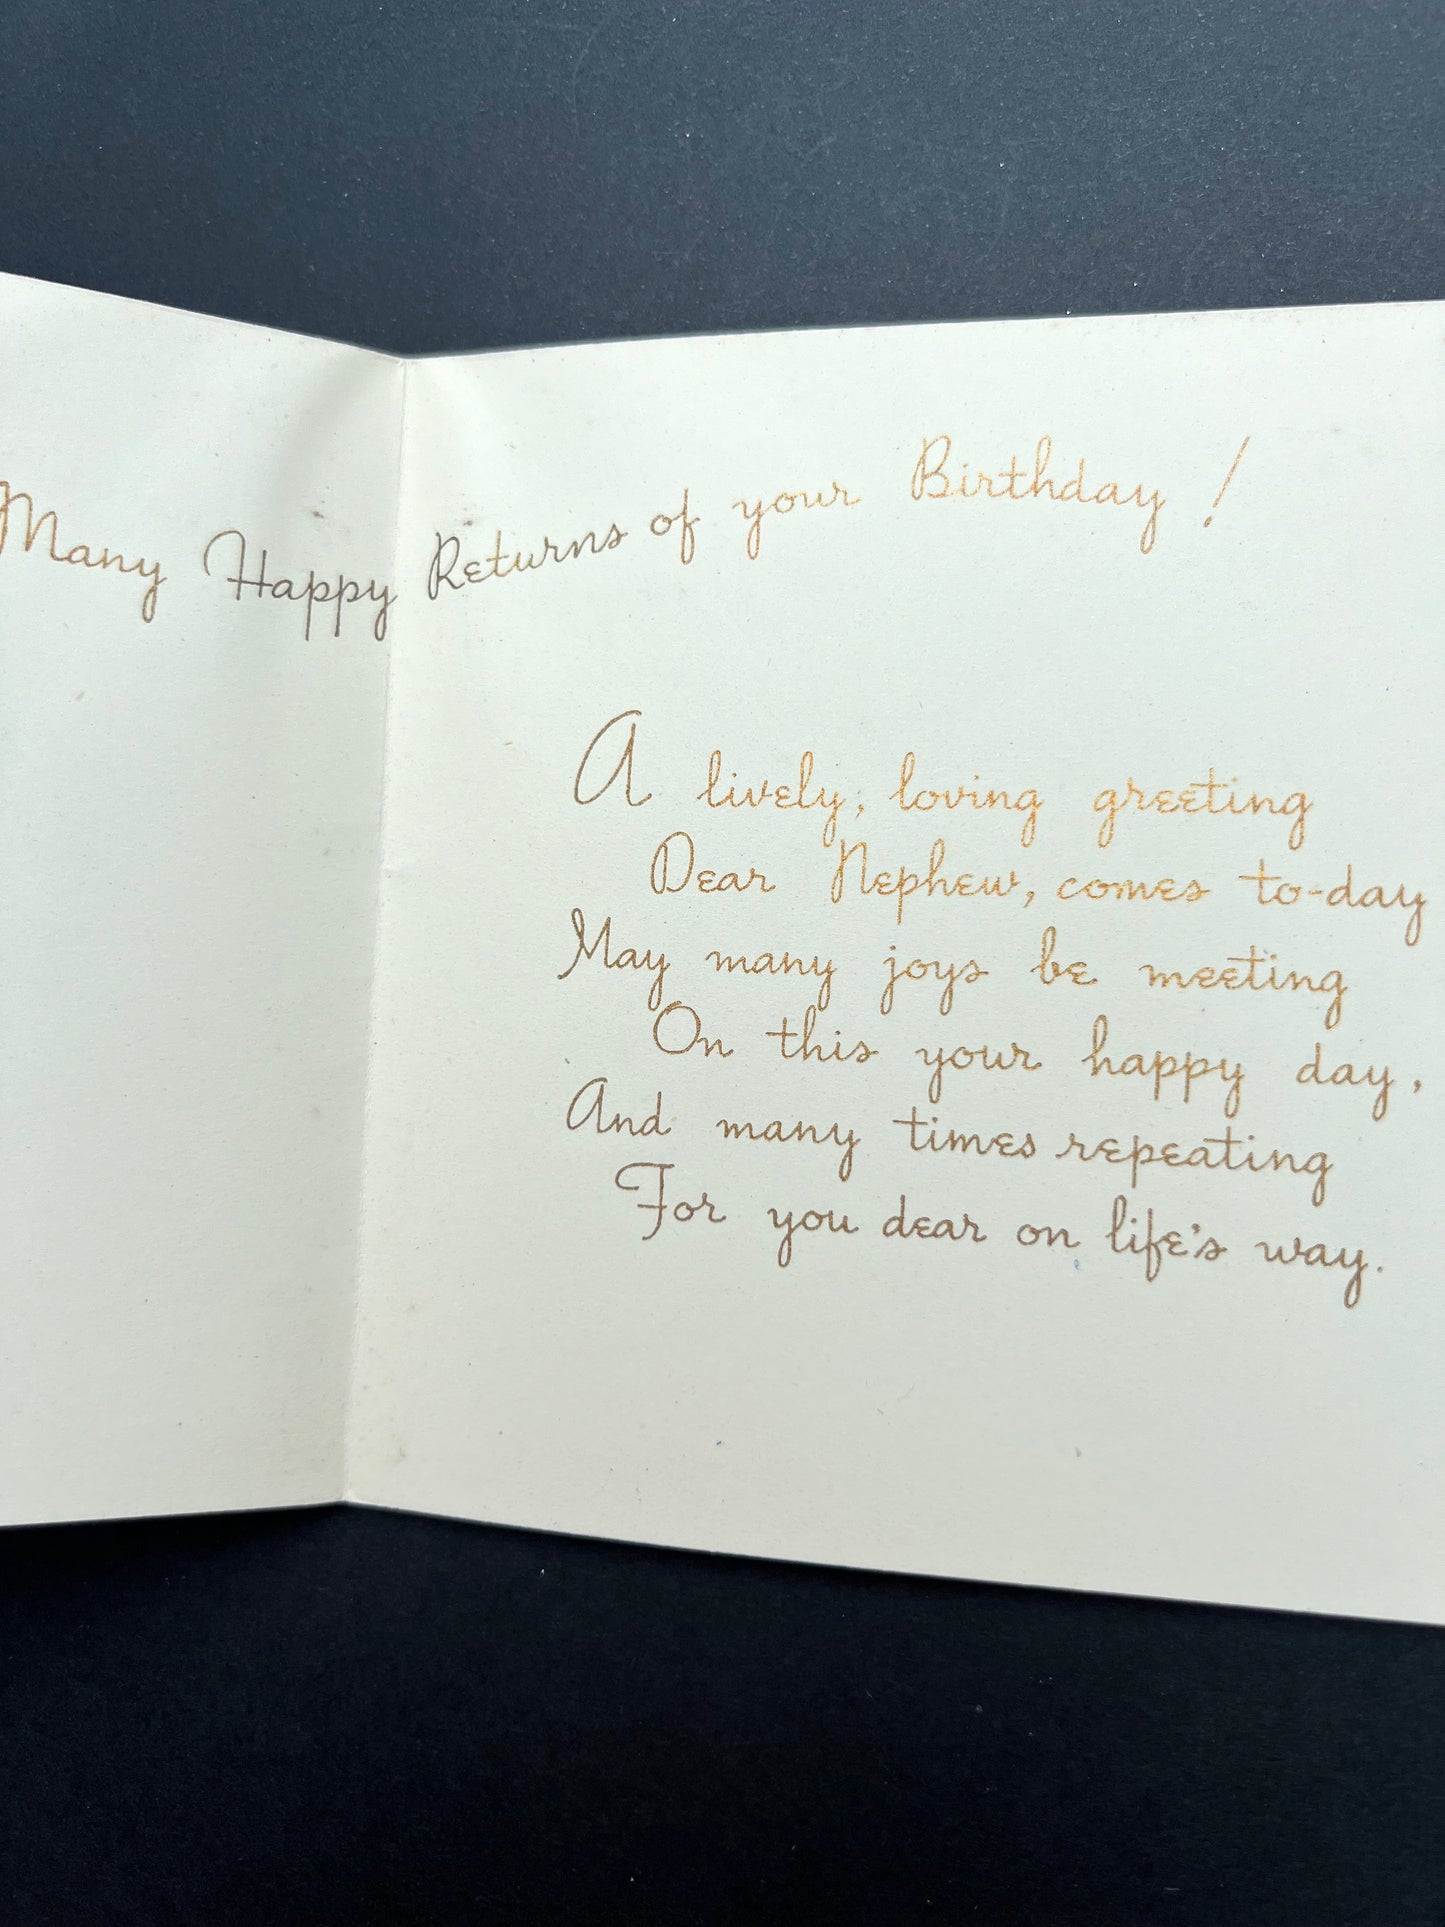 Many Happy Returns of your Birthday!
A lively, loving greeting
Dear Nephew, comes to-day
May many joys be meeting
On this your happy day,
And many times repeating
For you dear on life's way.